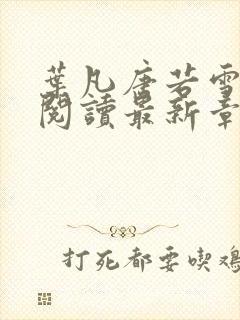 葉凡唐若雪
閱讀最新章
打死都要喫雞